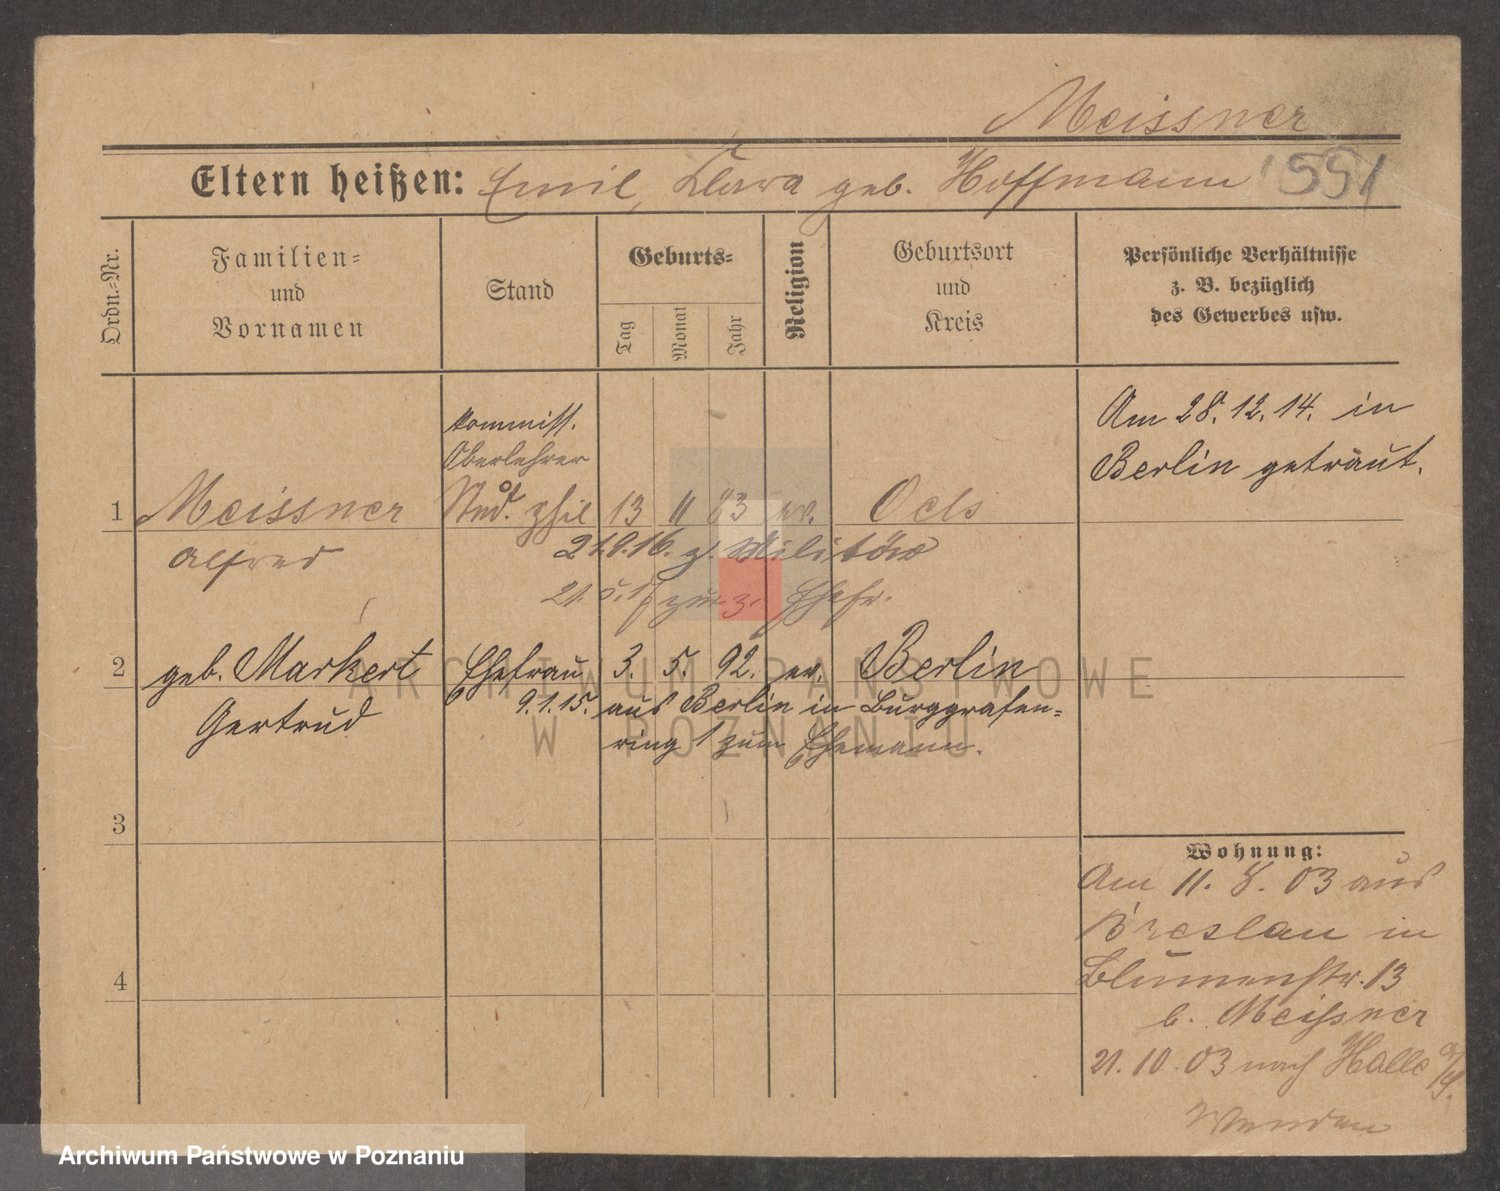 Meissner
Eltern heißen: Emil, Klara geb. Hoffmann 1551
Ordn.-Nr.
Familien-
und
Vornamen
Stand
Geburts-
Tag
Monat
Jahr
Religion
Geburtsort
und
Kreis
Persönliche Verhältnisse
z. B. bezüglich
des Gewerbes usw.
kommiss.
Oberlehrer
1 Meissner Stud. phil 13 11 83 ev. Oels
Alfred
21.9.16. z. Militär
21. 5. 17 zur Ehefr.
Am 28.12.14. in
Berlin getraut.
2 geb. Markert Ehefrau 3. 5. 92. ev. Berlin
Gertrud 9.1.15. aus Berlin in Burggrafen-
ring 1 zum Ehemann.
3
4
Wohnung:
Am 11. 8. 03 aus
Breslau in
Blumenstr. 13
b. Meissner
21. 10. 03 nach Halle a/S.
Wenden
ARCHIWUM PAŃSTWOWE
W POZNANIU
Archiwum Państwowe w Poznaniu